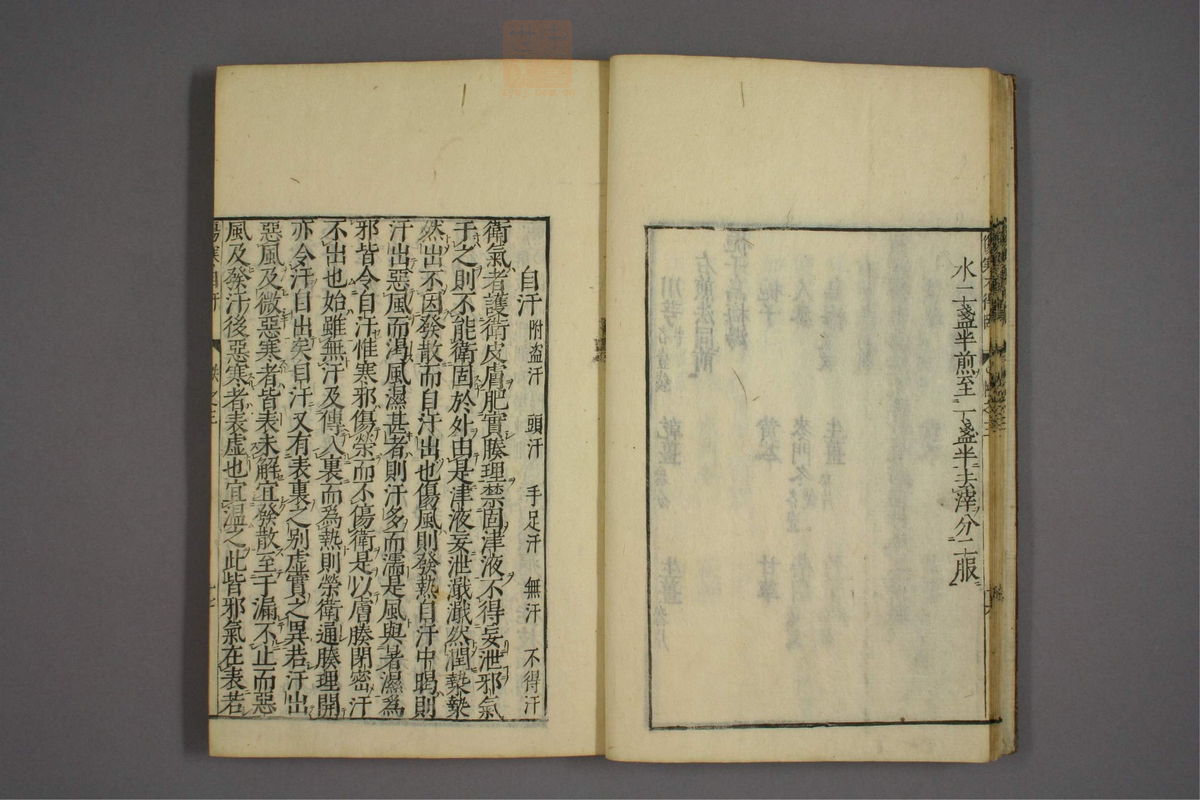 水二盞半煎至一盞半去滓分二服
自汗 附盗汗 頭汗 手足汗 無汗 不得汗
衛氣者護衛皮膚肥實腠理禁固津液不得妄泄邪氣
干之則不能衛固於外由是津液妄泄濈濈然潤漐漐
然出不因發散而自汗出也傷風則發熱自汗中暍則
汗出惡風而渴風濕甚者則汗多而濡是風與暑濕為
邪皆令自汗惟寒邪傷榮而不傷衛是以膚腠閉密汗
不出也始雖無汗及傳入裏而為熱則榮衛通腠理開
亦令汗自出矣自汗又有表裏之別虛實之異若汗出
惡風及微惡寒者皆表未解宜發散至于漏不止而惡
風及發汗後惡寒者表虛也宜溫之此皆邪氣在表若